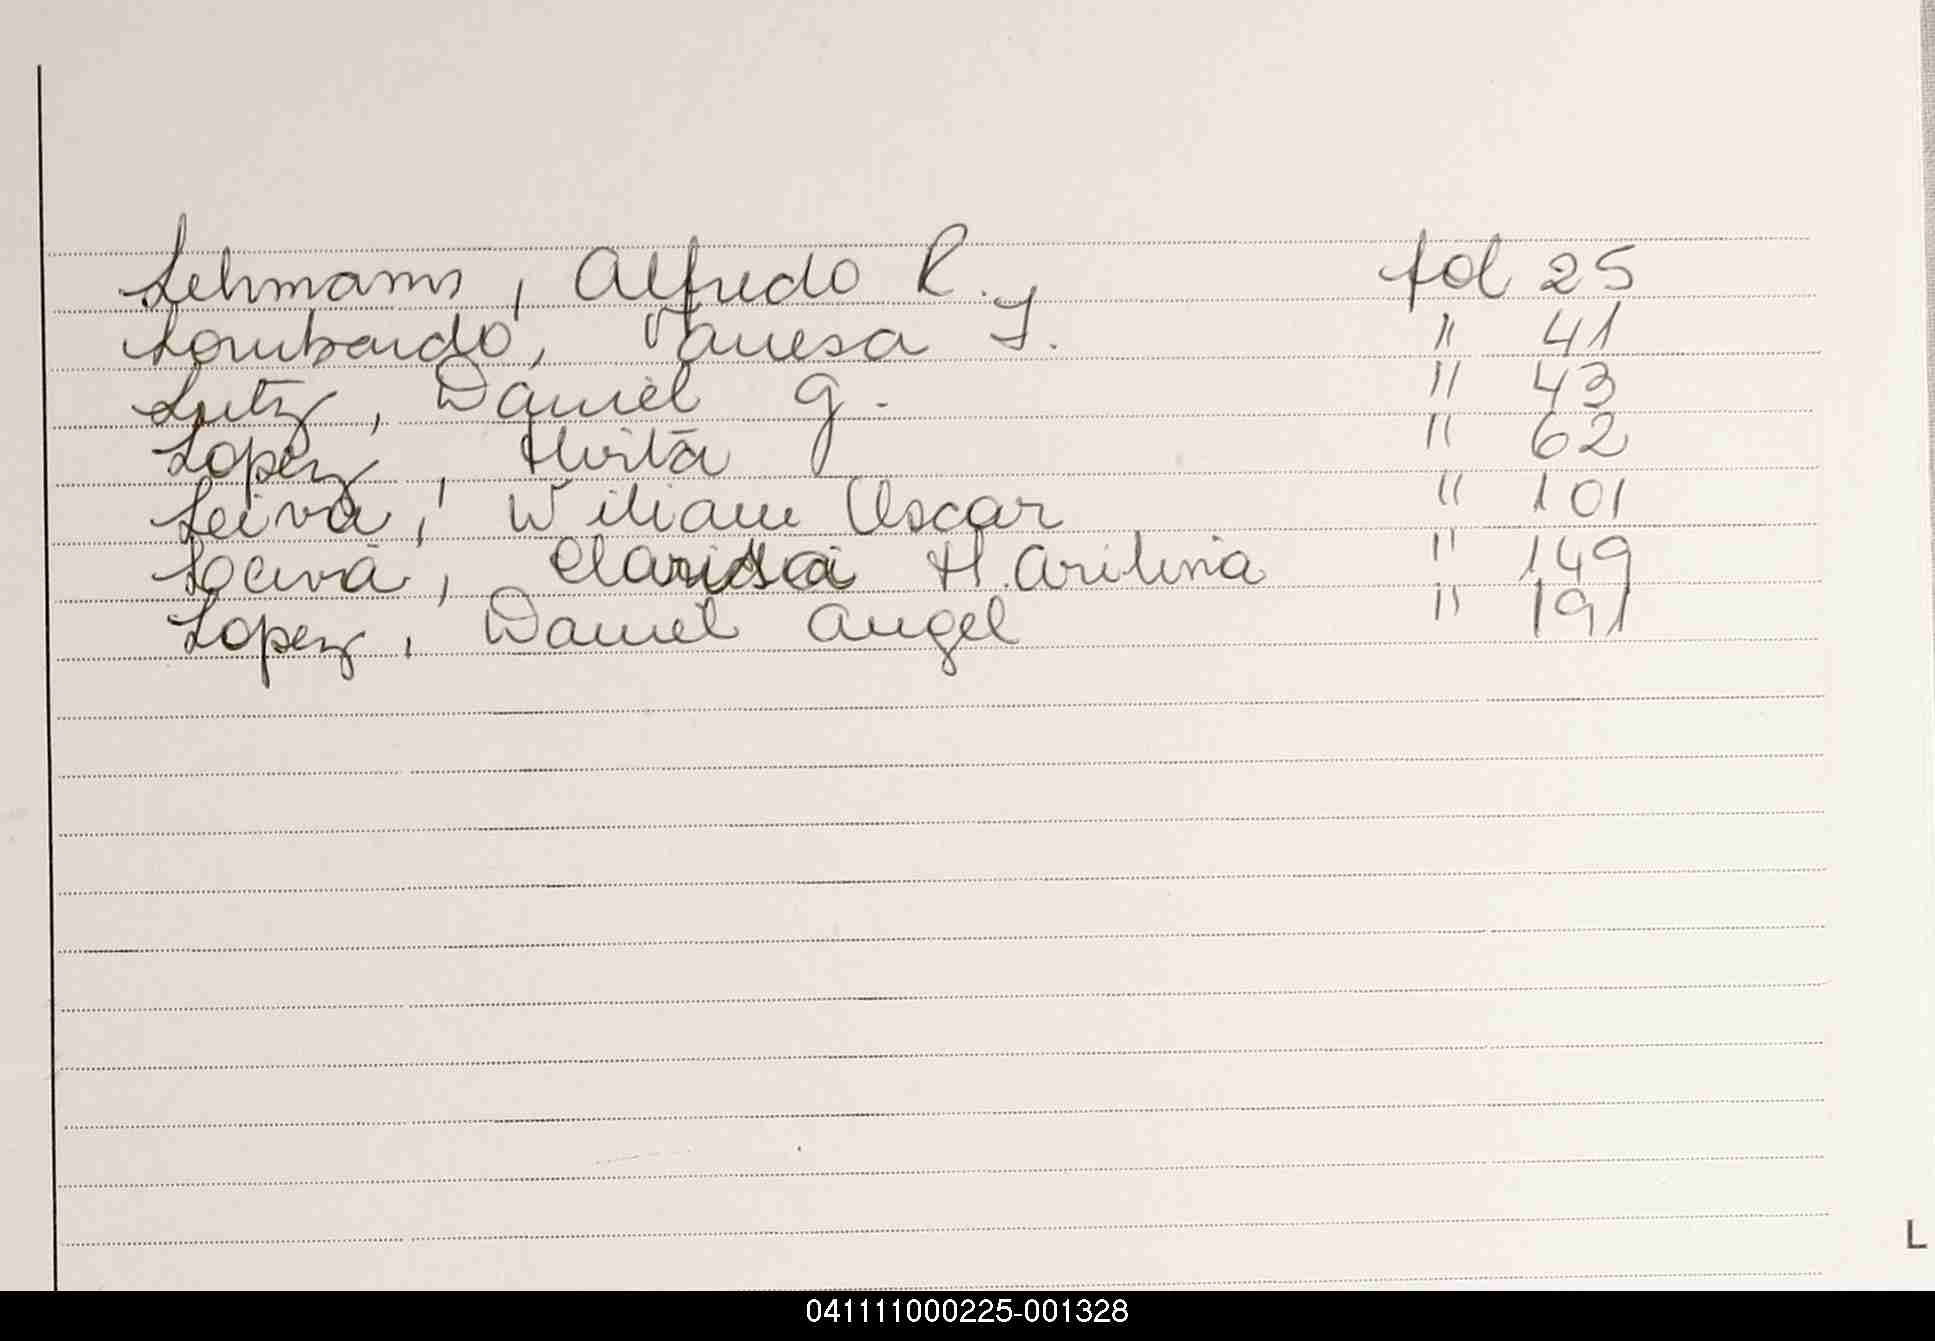 Lehmann, Alfredo R. fol 25
Lombardo, Vanesa Y. " 41
Lutz, Daniel G. " 43
Lopez, Mirta " 62
Leiva, Wiliam Oscar " 101
Clarisa " 149
Lopez, Daniel Angel " 191
L
041111000225-001328